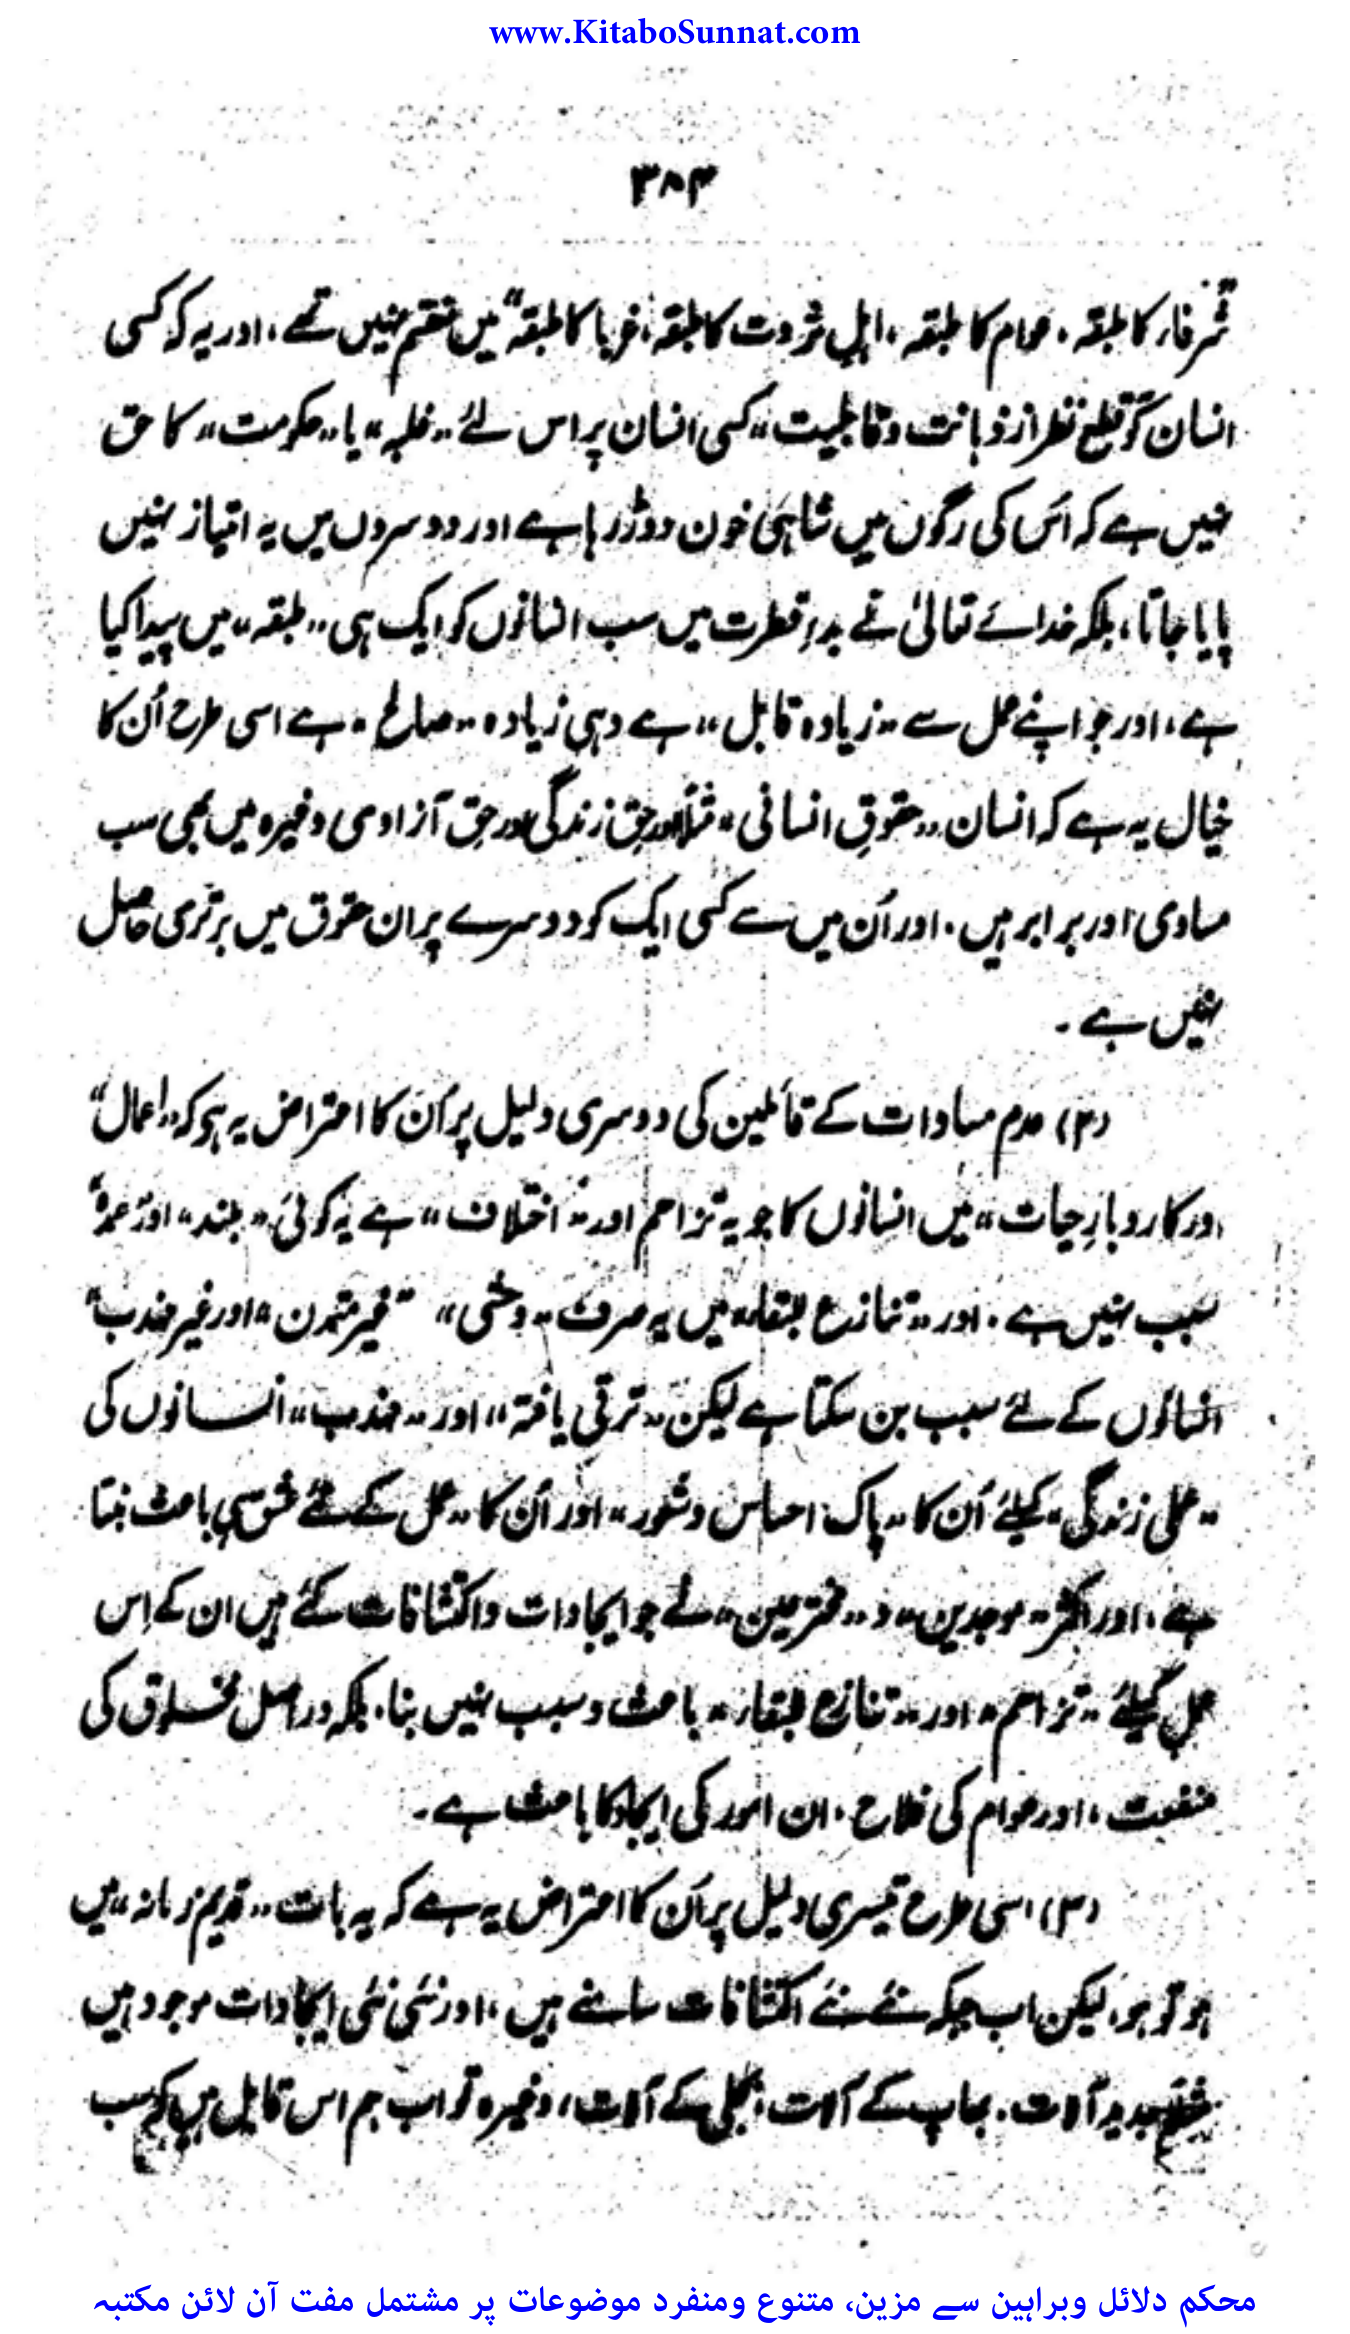 www.KitaboSunnat.com
۳۸۴
شرفاء کا طبقہ، عوام کا طبقہ، اہلِ ثروت کا طبقہ، غربا کا طبقہ“ میں منقسم نہیں تھے، اور یہ کہ کسی
انسان کو قطع نظر از ذہانت و قابلیت“ کسی انسان پر اس لئے „غلبہ“ یا „حکومت“ کا حق
نہیں ہے کہ اُس کی رگوں میں شاہی خون دوڑ رہا ہے اور دوسروں میں یہ امتیاز نہیں
پایا جاتا، بلکہ خدائے تعالیٰ نے بدءِ فطرت میں سب انسانوں کو ایک ہی „طبقہ“ میں پیدا کیا
ہے، اور جو اپنے عمل سے „زیادہ قابل“ ہے وہی زیادہ „صالح“ ہے اسی طرح اُن کا
خیال یہ ہے کہ انسان „حقوقِ انسانی“ مثلاً حقِ زندگی اور حق آزادی وغیرہ میں بھی سب
مساوی اور برابر ہیں۔ اور اُن میں سے کسی ایک کو دوسرے پر ان حقوق میں برتری حاصل
نہیں ہے۔
(۲) عدم مساوات کے قائلین کی دوسری دلیل پر اُن کا اعتراض یہ ہے کہ „اعمال“
اور کاروبارِ حیات“ میں انسانوں کا جو یہ تزاحم اور „اختلاف“ ہے یہ کوئی „بلند“ اور ”عمدہ“
سبب نہیں ہے۔ اور „تنازع للبقاء“ میں یہ صرف „وحشی“ ”غیر متمدن“ اور غیر مہذب“
انسانوں کے لئے سبب بن سکتا ہے لیکن „ترقی یافتہ“ اور „مہذب“ انسانوں کی
„عملی زندگی“ کیلئے اُن کا „پاک احساس و شعور“ اور اُن کا „عمل کے لئے عشق ہی باعث بنتا
ہے، اور اکثر „موجدین“ و „مخترعین“ نے جو ایجادات و اکتشافات کئے ہیں ان کے اِس
عمل کیلئے „تزاحم“ اور „تنازع للبقاء“ باعث و سبب نہیں بنا، بلکہ دراصل مخلوق کی
منفعت، اور عوام کی فلاح، ان امور کی ایجاد کا باعث ہے۔
(۳) اسی طرح تیسری دلیل پر اُن کا اعتراض یہ ہے کہ یہ بات „قدیم زمانہ“ میں
ہو تو ہو، لیکن اب جبکہ نئے نئے اکتشافات سامنے ہیں، اور نئی نئی ایجادات موجود ہیں
جدید آلات، بھاپ کے آلات، بجلی کے آلات، وغیرہ تو اب ہم اس قابل ہیں کہ سب
محکم دلائل وبراہین سے مزین، متنوع ومنفرد موضوعات پر مشتمل مفت آن لائن مکتبہ